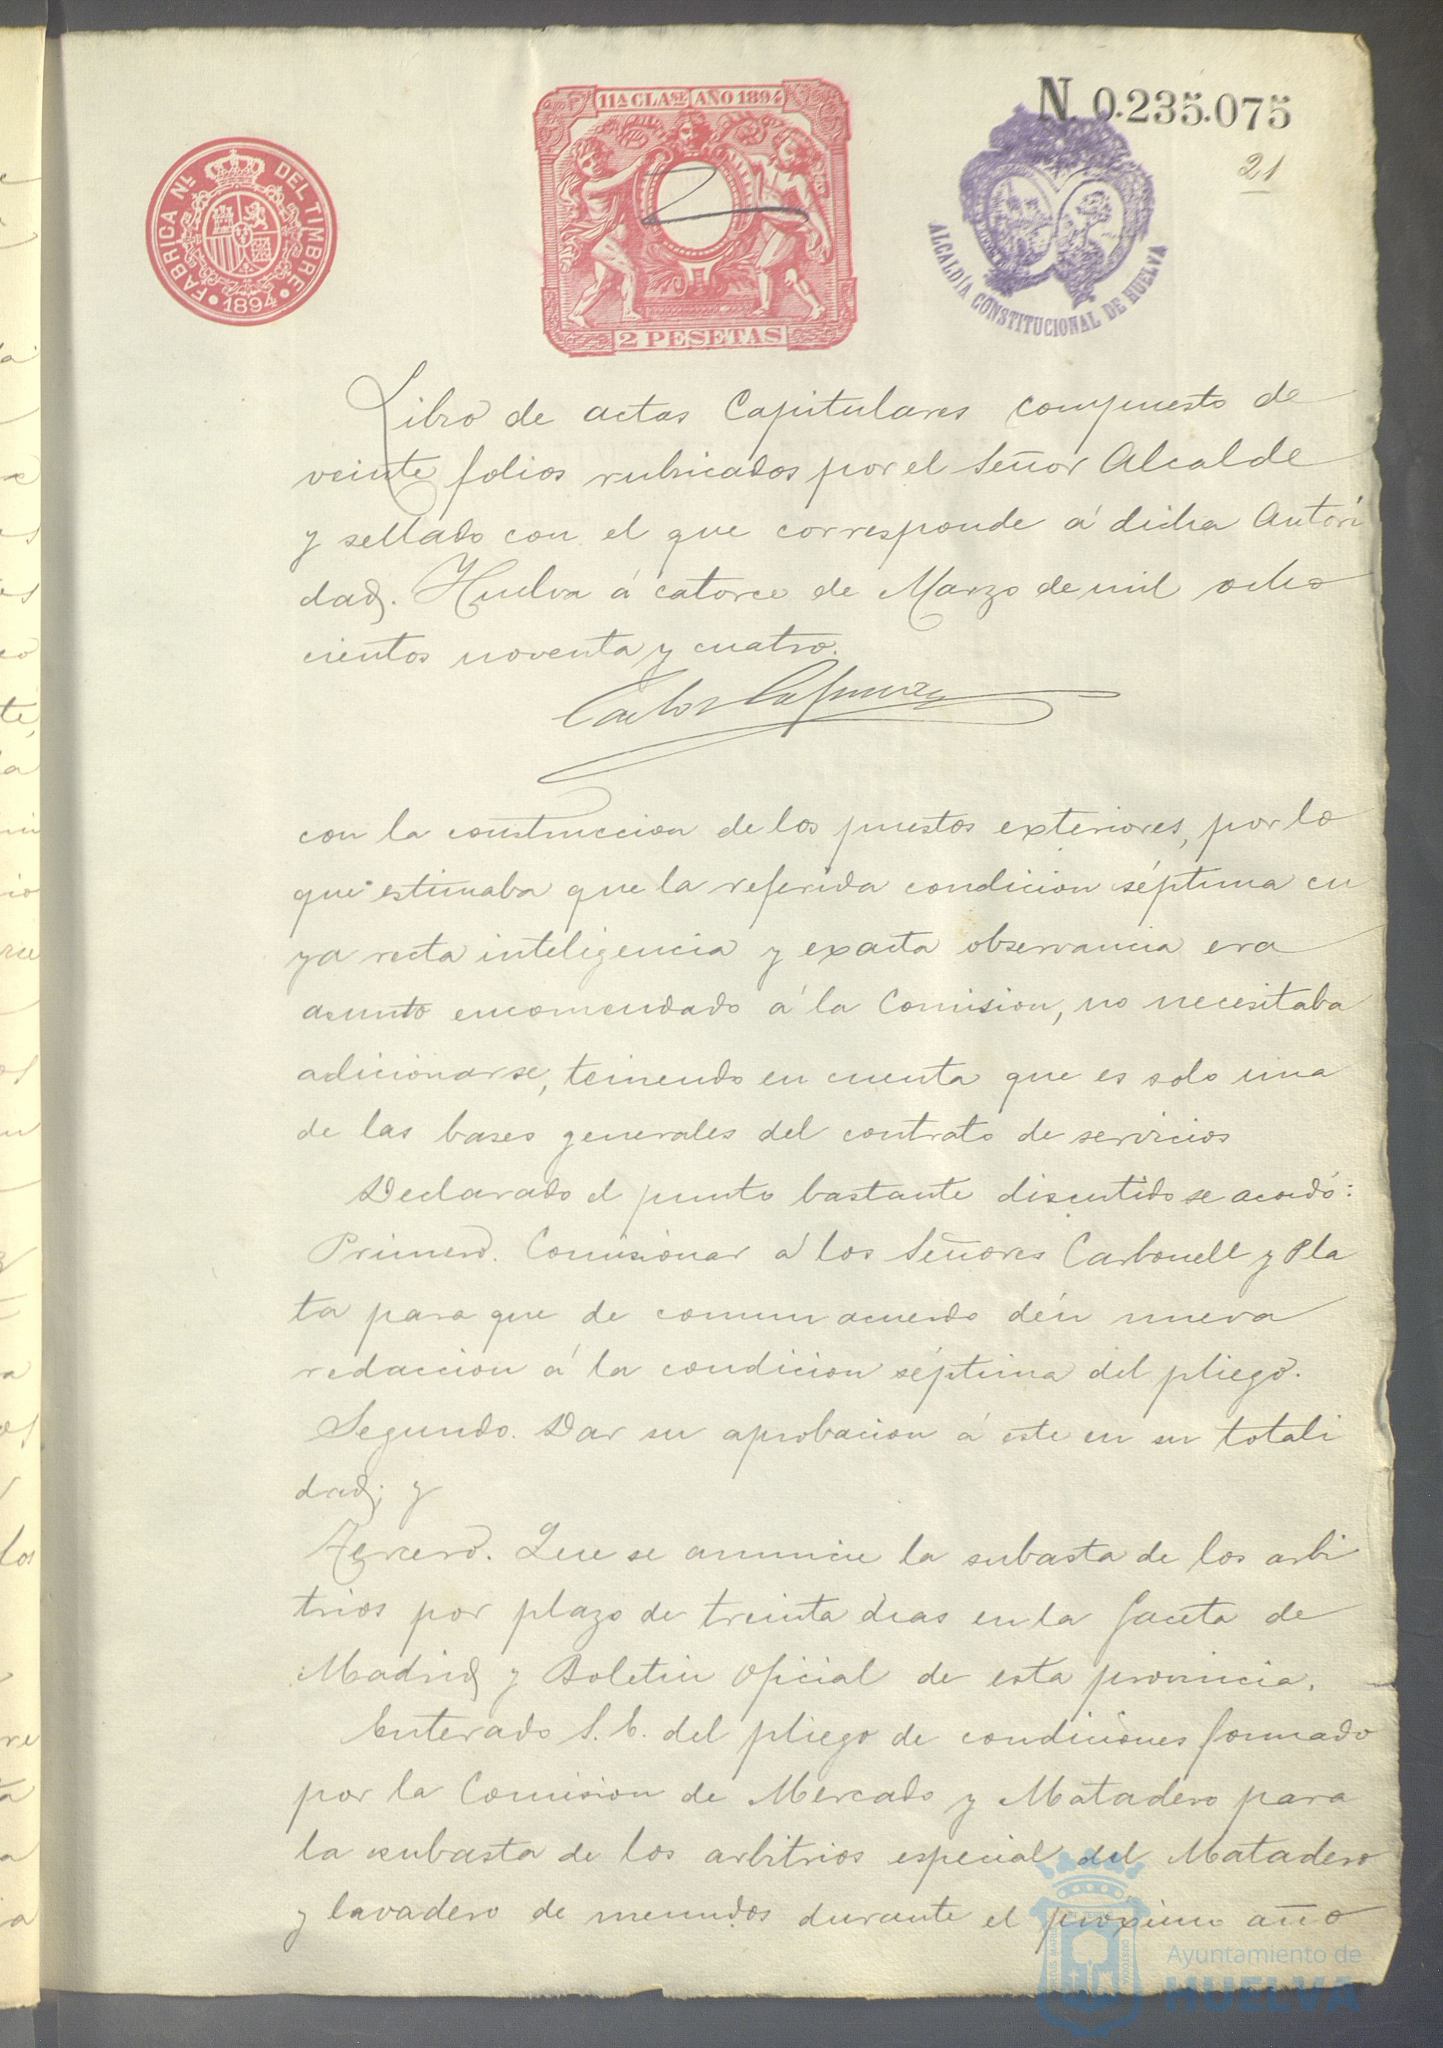 11ª CLASE AÑO 1894
N. 0.235.075
21
FABRICA NL. DEL TIMBRE
1894
2 PESETAS
ALCALDÍA CONSTITUCIONAL DE HUELVA
Libro de actas Capitulares compuesto de
veinte folios rubricados por el Señor Alcalde
y sellado con el que corresponde á dicha Autori
dad. Huelva á catorce de Marzo de mil ocho
cientos noventa y cuatro.
Carlos
con la construccion de los puestos exteriores, por lo
que estimaba que la referida condicion séptima cu
ya recta inteligencia y exacta observancia era
asunto encomendado á la Comision, no necesitaba
adicionarse, teniendo en cuenta que es solo una
de las bases generales del contrato de servicios
Declarado el punto bastante discutido se acordó:
Primero. Comisionar á los Señores Carbonell y Pla
ta para que de comun acuerdo dén nueva
redaccion á la condicion séptima del pliego.
Segundo. Dar su aprobacion á este en su totali
dad; y
Tercero. Que se anuncie la subasta de los arbi
trios por plazo de treinta dias en la Gaceta de
Madrid y Boletin Oficial de esta provincia.
Enterado S. E. del pliego de condiciones formado
por la Comision de Mercado y Matadero para
la subasta de los arbitrios especial del Matadero
y lavadero de menudos durante el proximo año
Ayuntamiento de
HUELVA